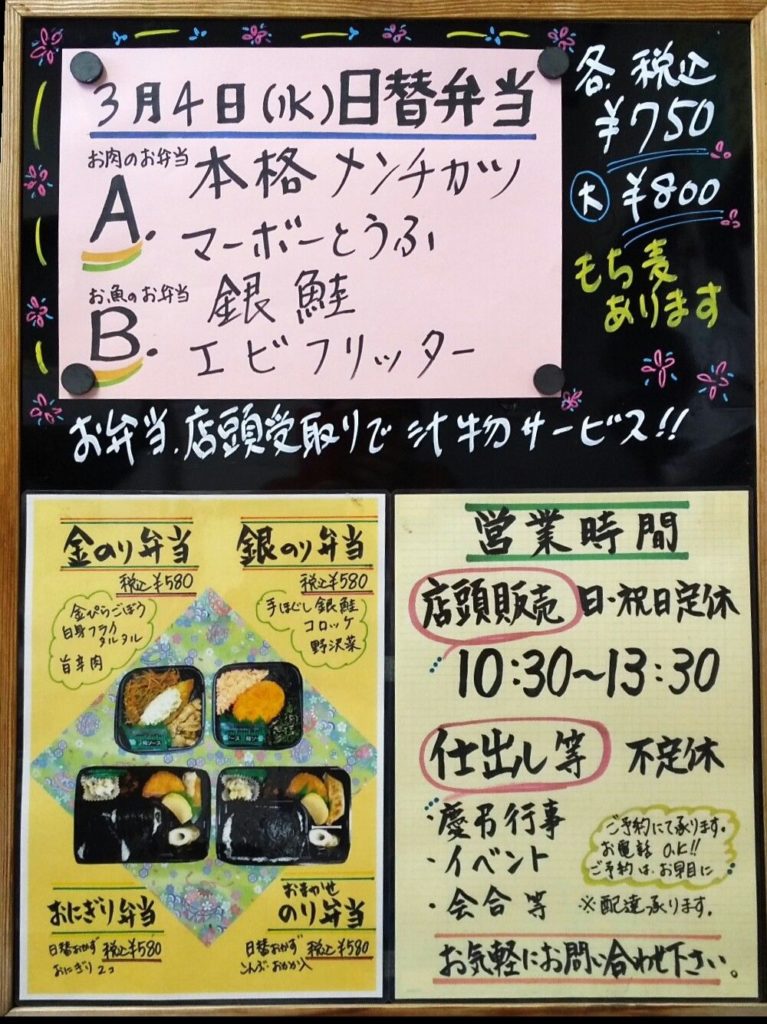 3月4日(水)日替弁当
お肉のお弁当
A. 本格メンチカツ
マーボーとうふ
お魚のお弁当
B. 銀鮭
エビフリッター
各税込
¥750
大 ¥800
もち麦
あります
お弁当、店頭受取りで汁物サービス!!
金のり弁当
税込¥580
金ぴらごぼう
白身フライ
タルタル
旨辛肉
銀のり弁当
税込¥580
手ほぐし銀鮭
コロッケ
野沢菜
おにぎり弁当
日替おかず 税込¥580
おにぎり2コ
おまかせ
のり弁当
日替おかず 税込¥580
こんぶ・おかか入
営業時間
店頭販売 日・祝日定休
10:30～13:30
仕出し等 不定休
・慶弔行事
・イベント
・会合等
ご予約にて承ります。
お電話O.K!!
ご予約は、お早目に
※配達承ります。
お気軽にお問い合わせ下さい。